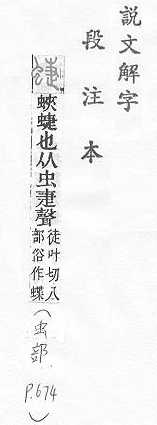 說文解字
段注本
蜨
蛺蜨也从虫疌聲
徒叶切八
部俗作蝶
(虫部 P.674)